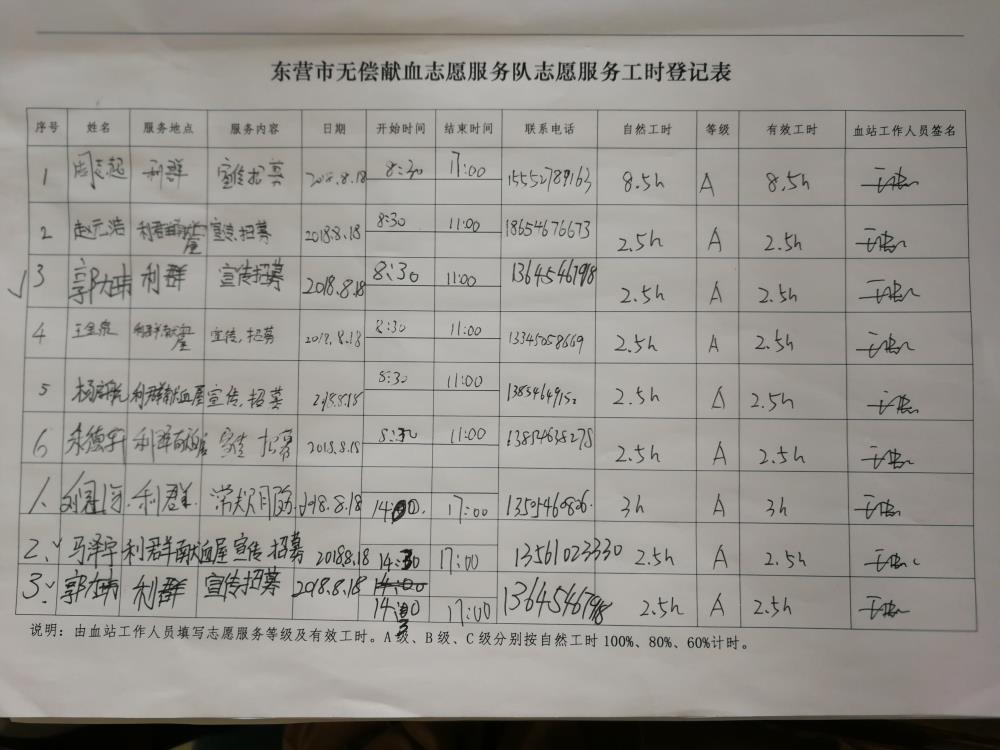 东营市无偿献血志愿服务队志愿服务工时登记表
序号 姓名 服务地点 服务内容 日期 开始时间 结束时间 联系电话 自然工时 等级 有效工时 血站工作人员签名
1 周志起 利群 宣传招募 2018.8.18 8:30 17:00 15552789163 8.5h A 8.5h
2 赵元浩 利群献血屋 宣传.招募 2018.8.18 8:30 11:00 18654676673 2.5h A 2.5h
3 利群 宣传招募 2018.8.18 8:30 11:00 2.5h A 2.5h
4 王金泉 利群献血屋 宣传.招募 2018.8.18 8:30 11:00 2.5h A 2.5h
5 利群献血屋 宣传.招募 2018.8.18 8:30 11:00 2.5h A 2.5h
6 利群献血屋 宣传 招募 2018.8.18 8:30 11:00 13854638278 2.5h A 2.5h
1. 利群. 2018.8.18 14:00. 17:00 3h A 3h
2. 马泽宇 利群献血屋 宣传 招募 2018.8.18 14:30 17:00 13561023330 2.5h A 2.5h
3. 利群 宣传招募 2018.8.18 14:00
14:30 17:00 2.5h A 2.5h
说明：由血站工作人员填写志愿服务等级及有效工时。A级、B级、C级分别按自然工时100%、80%、60%计时。